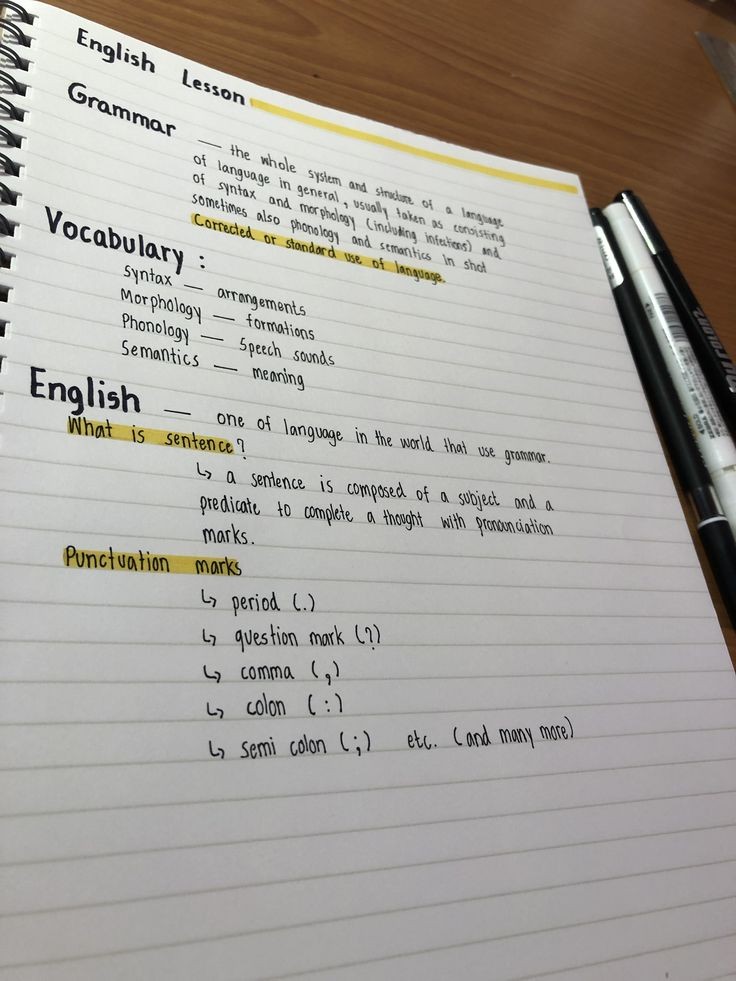 English Lesson
Grammar — the whole system and structure of a language
of language in general, usually taken as consisting
of syntax and morphology (including infections) and
sometimes also phonology and semantics in shot
Corrected or standard use of language.
Vocabulary :
Syntax — arrangements
Morphology — formations
Phonology — Speech sounds
Semantics — meaning
English — one of language in the world that use grammar.
What is sentence?
↳ a sentence is composed of a subject and a
predicate to complete a thought with pronounciation
marks.
Punctuation marks
↳ period (.)
↳ question mark (?)
↳ comma (,)
↳ colon (:)
↳ semi colon (;) etc. (and many more)